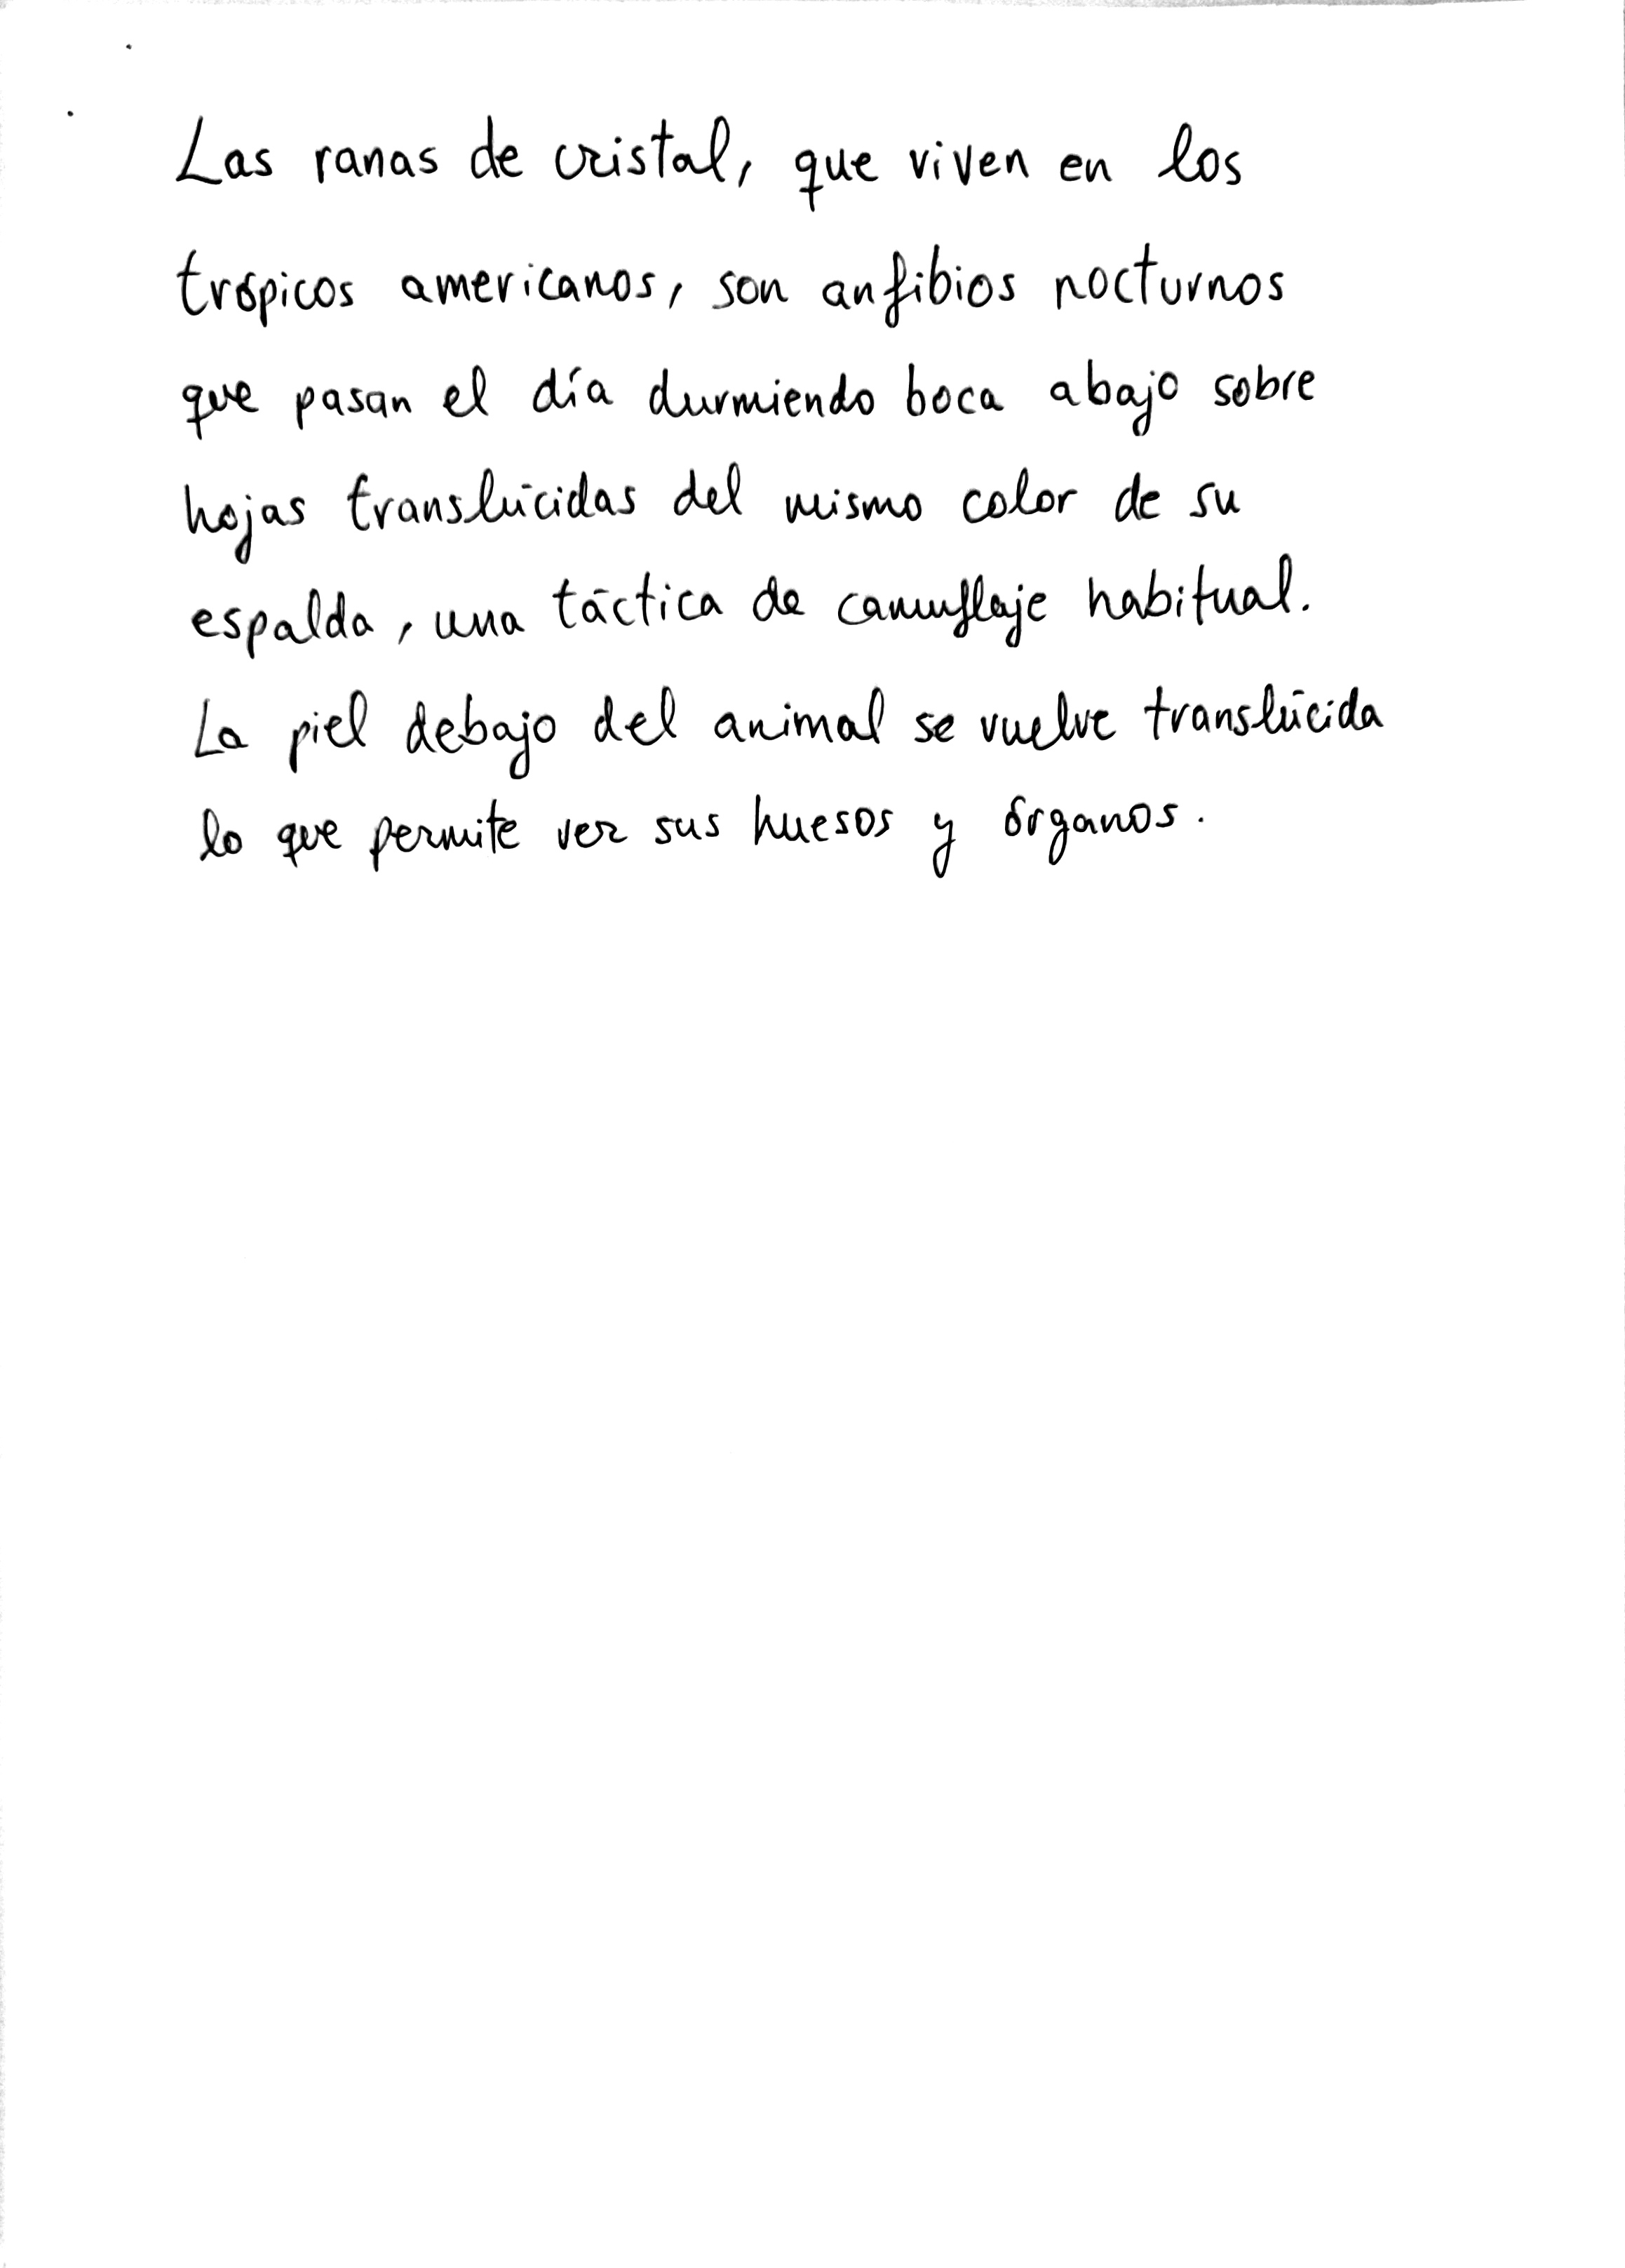 Las ranas de cristal, que viven en los
trópicos americanos, son anfibios nocturnos
que pasan el día durmiendo boca abajo sobre
hojas translúcidas del mismo color de su
espalda, una táctica de camuflaje habitual.
La piel debajo del animal se vuelve translúcida
lo que permite ver sus huesos y órganos.